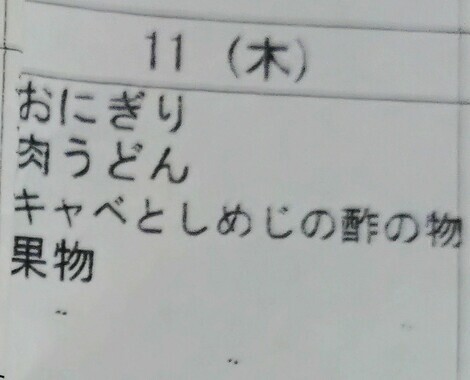 11 (木)
おにぎり
肉うどん
キャベとしめじの酢の物
果物